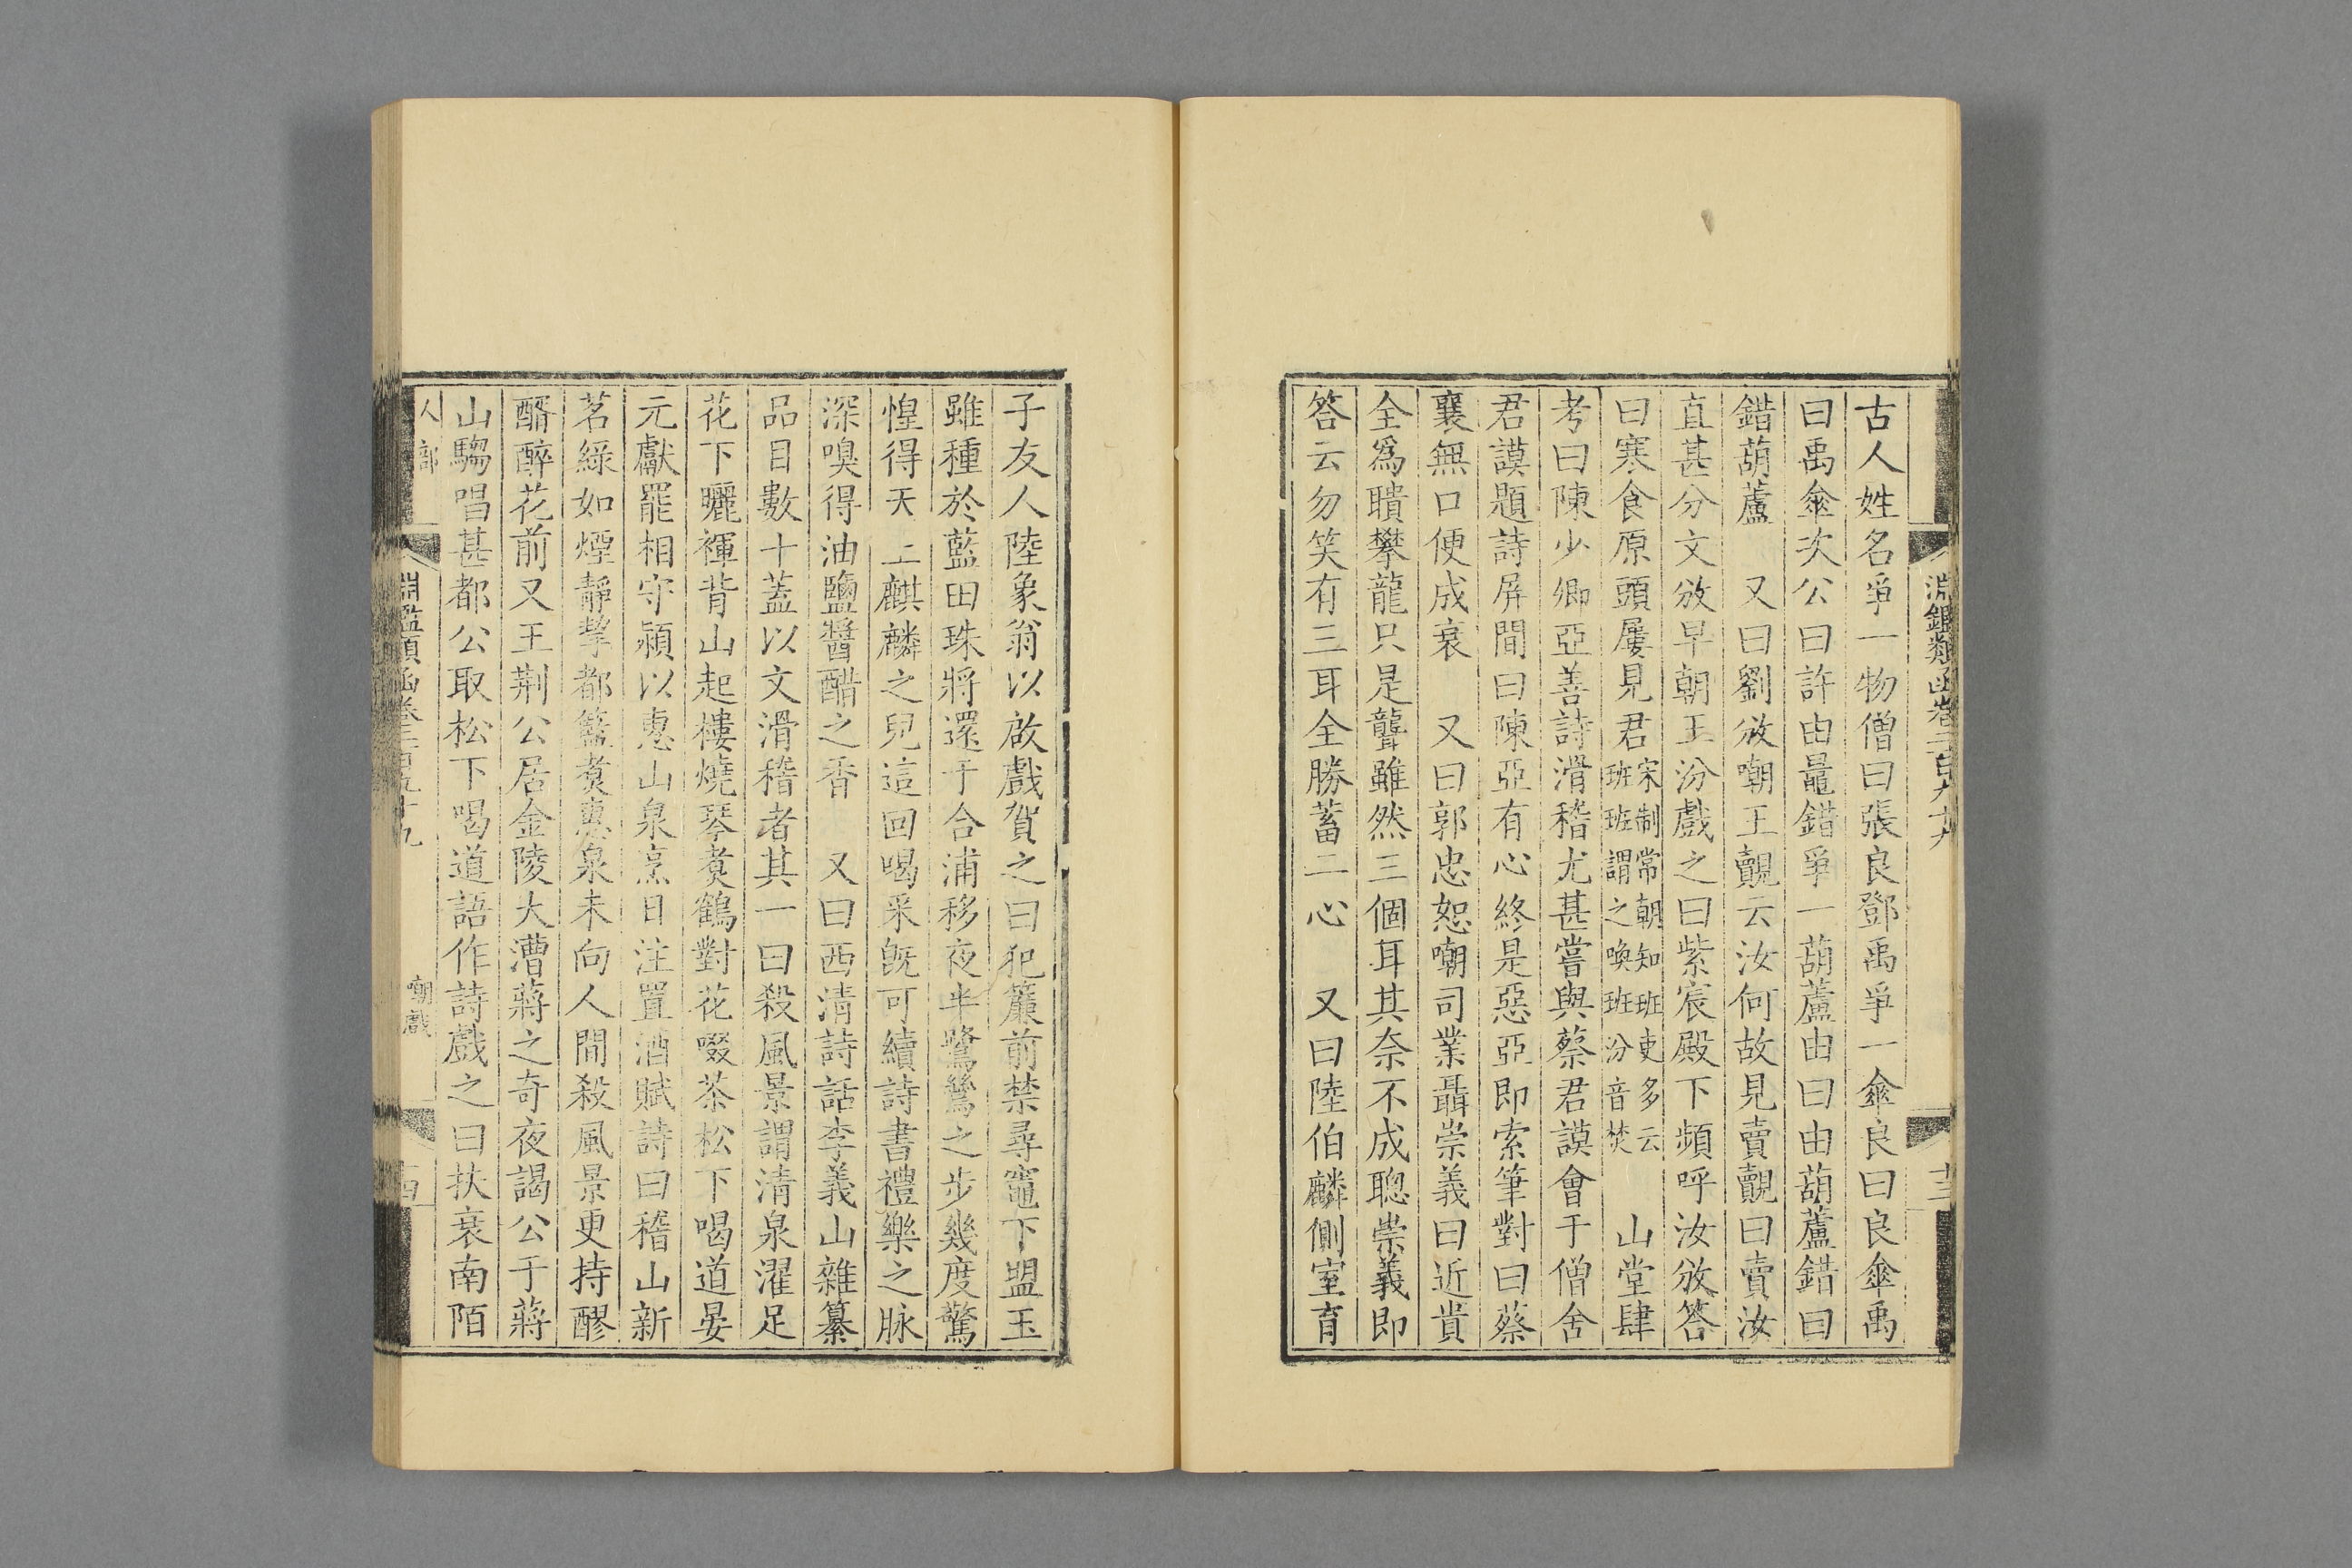 淵鑑類函卷二百九十九
十三
古人姓名爭一物僧曰張良鄧禹爭一傘良曰良傘禹
曰禹傘次公曰許由鼂錯爭一葫蘆由曰由葫蘆錯曰
錯葫蘆　又曰劉攽嘲王覿云汝何故見賣覿曰賣汝
直甚分文攽早朝王汾戲之曰紫宸殿下頻呼汝攽答
曰寒食原頭屢見君宋制常朝知班吏多云
班班謂之喚班汾音焚　山堂肆
考曰陳少卿亞善詩滑稽尤甚嘗與蔡君謨會于僧舍
君謨題詩屏間曰陳亞有心終是惡亞即索筆對曰蔡
襄無口便成衰　又曰郭忠恕嘲司業聶崇義曰近貴
全爲聵攀龍只是聾雖然三個耳其奈不成聰崇義即
答云勿笑有三耳全勝蓄二心　又曰陸伯麟側室育
子友人陸象翁以啟戲賀之曰犯簾前禁尋竈下盟玉
雖種於藍田珠將還于合浦移夜半鷺鷥之步幾度驚
惶得天上麒麟之兒這回喝采旣可續詩書禮樂之脉
深嗅得油鹽醬醋之香　又曰西清詩話李義山雜纂
品目數十蓋以文滑稽者其一曰殺風景謂清泉濯足
花下曬褌背山起樓燒琴煑鶴對花啜茶松下喝道晏
元獻罷相守潁以惠山泉烹日注置酒賦詩曰稽山新
茗綠如煙靜挈都籃煑惠泉未向人間殺風景更持醪
醑醉花前又王荆公居金陵大漕蔣之奇夜謁公于蔣
山騶唱甚都公取松下喝道語作詩戲之曰扶衰南陌
人部
淵鑑類函卷二百九十九
嘲戲
十四